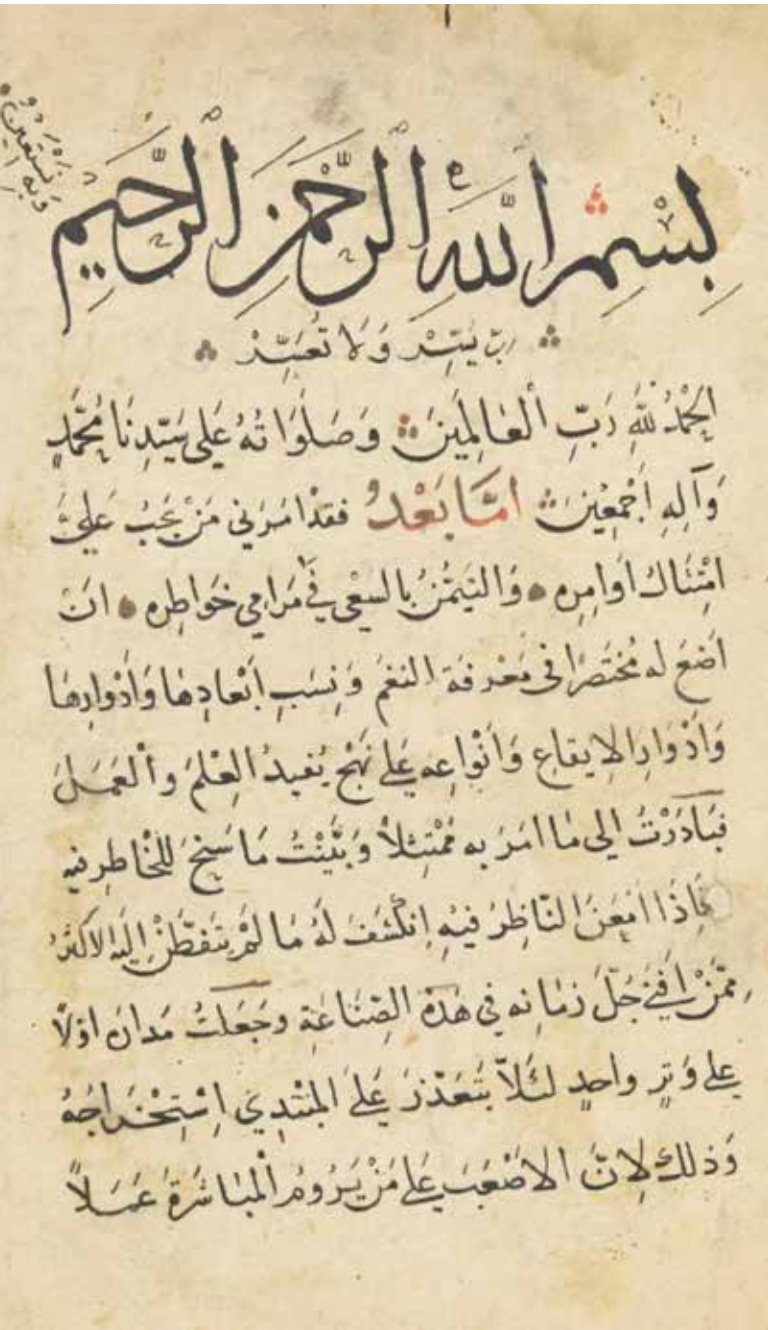 وبه نستعين
بِسْمِ اللّٰهِ الرَّحْمٰنِ الرَّحِيمِ
رَبِّ يَسِّرْ وَلَا تُعَسِّرْ
الحَمْدُ لِلّٰهِ رَبِّ الْعَالَمِينَ وَصَلَوَاتُهُ عَلَى سَيِّدِنَا مُحَمَّدٍ
وَآلِهِ أَجْمَعِينَ أَمَّا بَعْدُ فقَدْ امَرَني مَنْ يَجِبُ عَلَيَّ
امْتِثَالُ اوَامِرِه وَالتَيَمُّنُ بالسعْي في مَرَامِي خَوَاطِرِه انْ
اَضَعَ له مُخْتَصَرًا في مَعْرِفَةِ النغَم وَنِسَبِ ابْعَادِهَا وَأَدْوَارِهَا
وَأَدْوَارِ الايقاعِ وَأَنْوَاعِه عَلَى نَهْجٍ يُفيدُ العِلْمَ والْعَمَلَ
فَبَادَرْتُ إلى مَا امَرَ به مُمْتَثِلاً وَبَيَّنْتُ مَا سَنَحَ للخَاطِرِ فيهِ
فَإذَا امْعَنَ النَّاظِرُ فيهِ انكَشَفَ لَهُ مَا لَمْ يَتَفَطَّنْ إليهِ الاكثَرُ
مِمَّنْ افْنَى جُلَّ زمَانِه في هَذِهِ الصِّنَاعَةِ وجَعَلْتُ مَدَارَهُ اوّلاً
عَلَى وَتَرٍ واحِدٍ لئَلاَّ يَتَعَذَّرَ عَلَى المُبْتَدِي اسْتِخْرَاجُهُ
وَذلكَ لِانَّ الاصْعَبَ عَلَى مَنْ يَرُومُ الْمُبَاشَرَةُ عَمَلاً